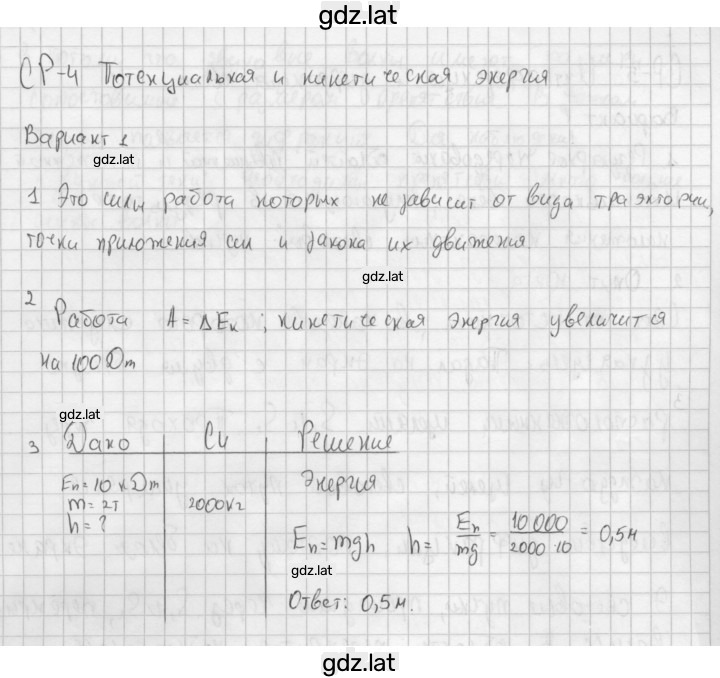 gdz.lat
СР-4 Потенциальная и кинетическая энергия
Вариант 1
gdz.lat
1 Это силы работа которых не зависит от вида траэктории,
точки приложения сил и закона их движения
gdz.lat
2 Работа A = ΔEк ; кинетическая энергия увеличится
на 100 Дж
gdz.lat
3 Дано Си Решение
Eп = 10 кДж Энергия
m = 2т 2000кг
h = ?
Eп = mgh h = Eп/mg = 10 000/2000·10 = 0,5м
gdz.lat
Ответ: 0,5м.
gdz.lat